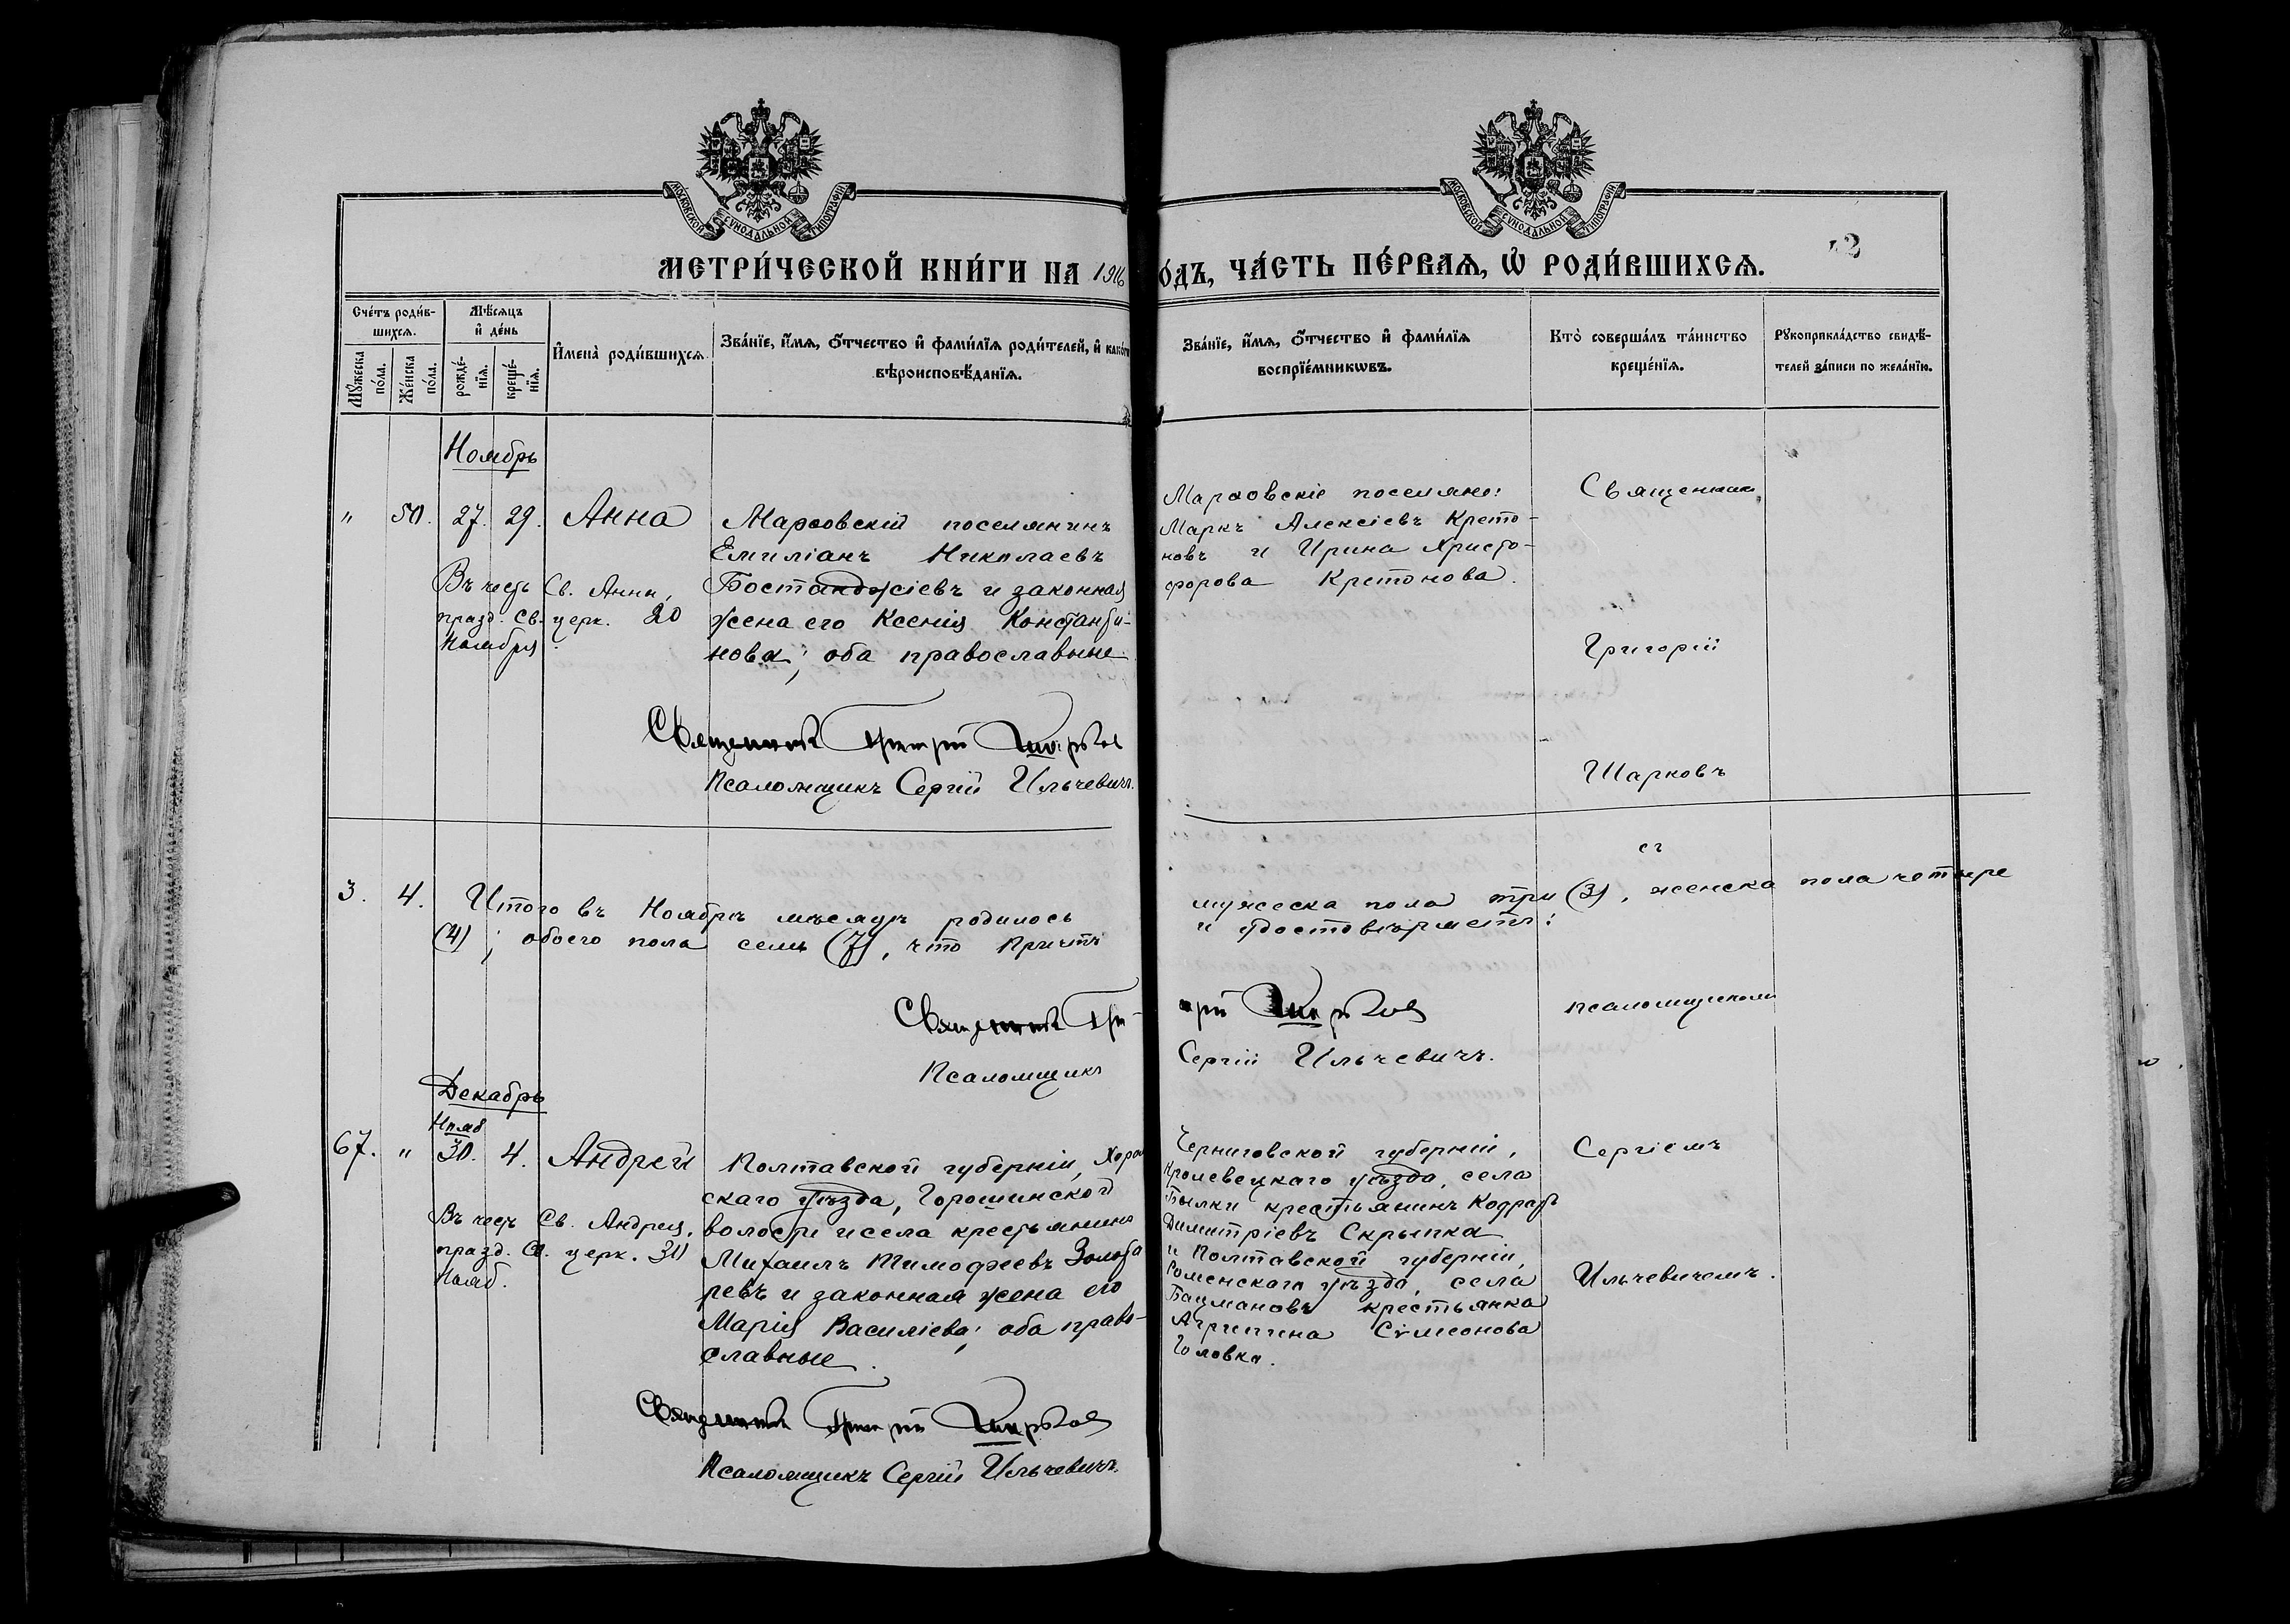 МОСКОВСКОЙ СѴНОДАЛЬНОЙ ТИПОГРАФІИ
МОСКОВСКОЙ СѴНОДАЛЬНОЙ ТИПОГРАФІИ
МЕТРИ́ЧЕСКОЙ КНИ́ГИ НА 1916
О́ДЪ, ЧА́СТЬ ПЕ́РВАѦ, Ѡ҆ РОДИ́ВШИХСѦ.
Сче́тъ роди́в-
шихсѧ.
Мꙋ́жеска по́ла.
Же́нска по́ла.
Мѣ́сѧцъ
и҆ де́нь
рожде́-
нїѧ.
креще́-
нїѧ.
И҆мена̀ роди́вшихсѧ.
Зва́нїе, и҆́мѧ, ѻ҆́тчество и҆ фами́лїѧ роди́телей, и҆ како́гѡ
вѣроисповѣ́данїѧ.
Зва́нїе, и҆́мѧ, ѻ҆́тчество и҆ фами́лїѧ
воспрїе́мникѡвъ.
Кто̀ соверша́лъ та́инство
креще́нїѧ.
Рꙋкоприкла́дство свидѣ́-
телей за́писи по жела́нїю.
Ноябрь
" 50. 27. 29. Анна
Въ честь Св. Анны,
празд. Св. церк. 20
Ноября.
поселянинъ
Емиліанъ Николаевъ
Бостанджіевъ и законная
жена его Ксенія Константи-
нова; оба православные.
Священникъ Григорій Шарковъ
Псаломщикъ Сергій Ильчевичъ.
поселяне:
Маркъ Алексіевъ Крето-
новъ и Ирина Христо-
форова Кретонова.
Священникъ
Григорій
Шарковъ
съ
3. 4. Итого въ Ноябрѣ мѣсяцѣ родилось
(4); обоего пола семь (7), что причтъ
мужеска пола три (3), женска пола четыре
и удостовѣряетъ:
Священникъ Гри-
горій Шарковъ
Псаломщикъ
Сергій Ильчевичъ.
псаломщикомъ
Декабрь
Нояб
67. " 30. 4. Андрей
Въ честь Св. Андрея,
празд. Св. церк. 30
Нояб.
Полтавской губерніи, Хороль
скаго уѣзда, Горошинской
волости и села крестьянинъ
Михаилъ Тимофеевъ Золота
ревъ и законная жена его
Марія Василіева; оба право-
славные.
Священникъ Григорій Шарковъ
Псаломщикъ Сергій Ильчевичъ.
Черниговской губерніи,
Кролевецкаго уѣзда, села
крестьянинъ Кодратъ
Димитріевъ Скрыпка
и Полтавской губерніи,
Роменскаго уѣзда, села
крестьянка
Агрипина Сѵмеонова
Головка.
Сергіемъ
Ильчевичемъ.